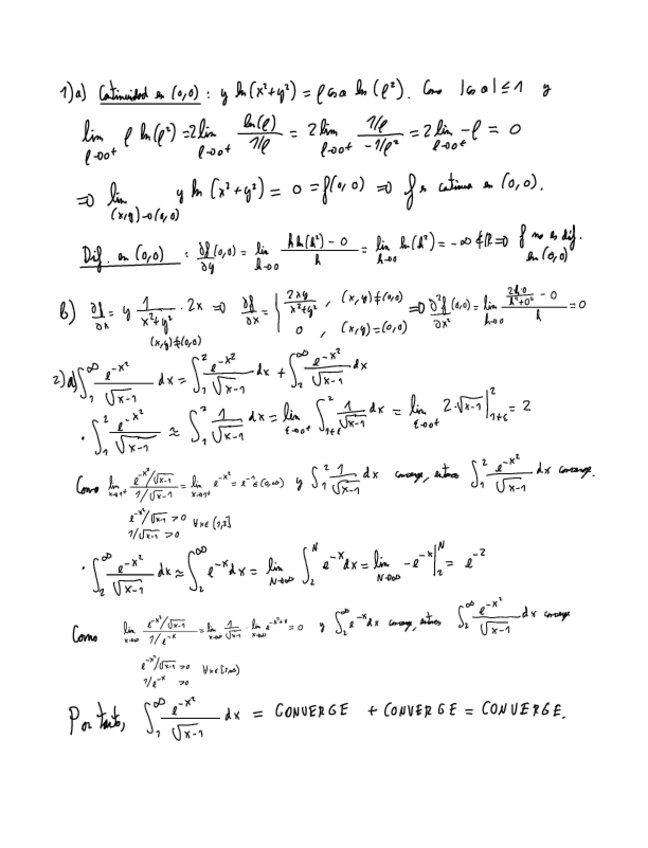 1) a) Continuidad en (0,0) : y ln(x²+y²) = ρ cos α ln(ρ²). Como |cos α| ≤ 1 y
lim_{ρ→0⁺} ρ ln(ρ²) = 2 lim_{ρ→0⁺} ln(ρ)/(1/ρ) = 2 lim_{ρ→0⁺} (1/ρ)/(-1/ρ²) = 2 lim_{ρ→0⁺} -ρ = 0
⇒ lim_{(x,y)→(0,0)} y ln(x²+y²) = 0 = f(0,0) ⇒ f es continua en (0,0).
Dif. en (0,0) : ∂f/∂y (0,0) = lim_{h→0} (h ln(h²) - 0)/h = lim_{h→0} ln(h²) = -∞ ∉ ℝ ⇒ f no es dif. en (0,0)
b) ∂f/∂x = y 1/(x²+y²) · 2x ⇒ ∂f/∂x = { 2xy/(x²+y²), (x,y)≠(0,0) ; 0, (x,y)=(0,0) ⇒ ∂²f/∂x² (0,0) = lim_{h→0} (2h·0/(h²+0²) - 0)/h = 0
(x,y)≠(0,0)
2) a) ∫₁^∞ e^{-x²}/√(x-1) dx = ∫₁² e^{-x²}/√(x-1) dx + ∫₂^∞ e^{-x²}/√(x-1) dx
· ∫₁² e^{-x²}/√(x-1) ≈ ∫₁² 1/√(x-1) dx = lim_{ε→0⁺} ∫_{1+ε}² 1/√(x-1) dx = lim_{ε→0⁺} 2·√(x-1) |_{1+ε}² = 2
Como lim_{x→1⁺} (e^{-x²}/√(x-1))/(1/√(x-1)) = lim_{x→1⁺} e^{-x²} = e^{-1} ∈ (0,∞) y ∫₁² 1/√(x-1) dx converge, entonces ∫₁² e^{-x²}/√(x-1) dx converge.
e^{-x²}/√(x-1) > 0
1/√(x-1) > 0 ∀x∈(1,2]
· ∫₂^∞ e^{-x²}/√(x-1) dx ≈ ∫₂^∞ e^{-x} dx = lim_{N→∞} ∫₂^N e^{-x} dx = lim_{N→∞} -e^{-x} |₂^N = e^{-2}
Como lim_{x→∞} (e^{-x²}/√(x-1))/(1/e^{-x}) = lim_{x→∞} 1/√(x-1) · lim_{x→∞} e^{-x²+x} = 0 y ∫₂^∞ e^{-x} dx converge, entonces ∫₂^∞ e^{-x²}/√(x-1) dx converge
e^{-x²}/√(x-1) > 0
1/e^{-x} > 0 ∀x∈[2,∞)
Por tanto, ∫₁^∞ e^{-x²}/√(x-1) dx = CONVERGE + CONVERGE = CONVERGE.